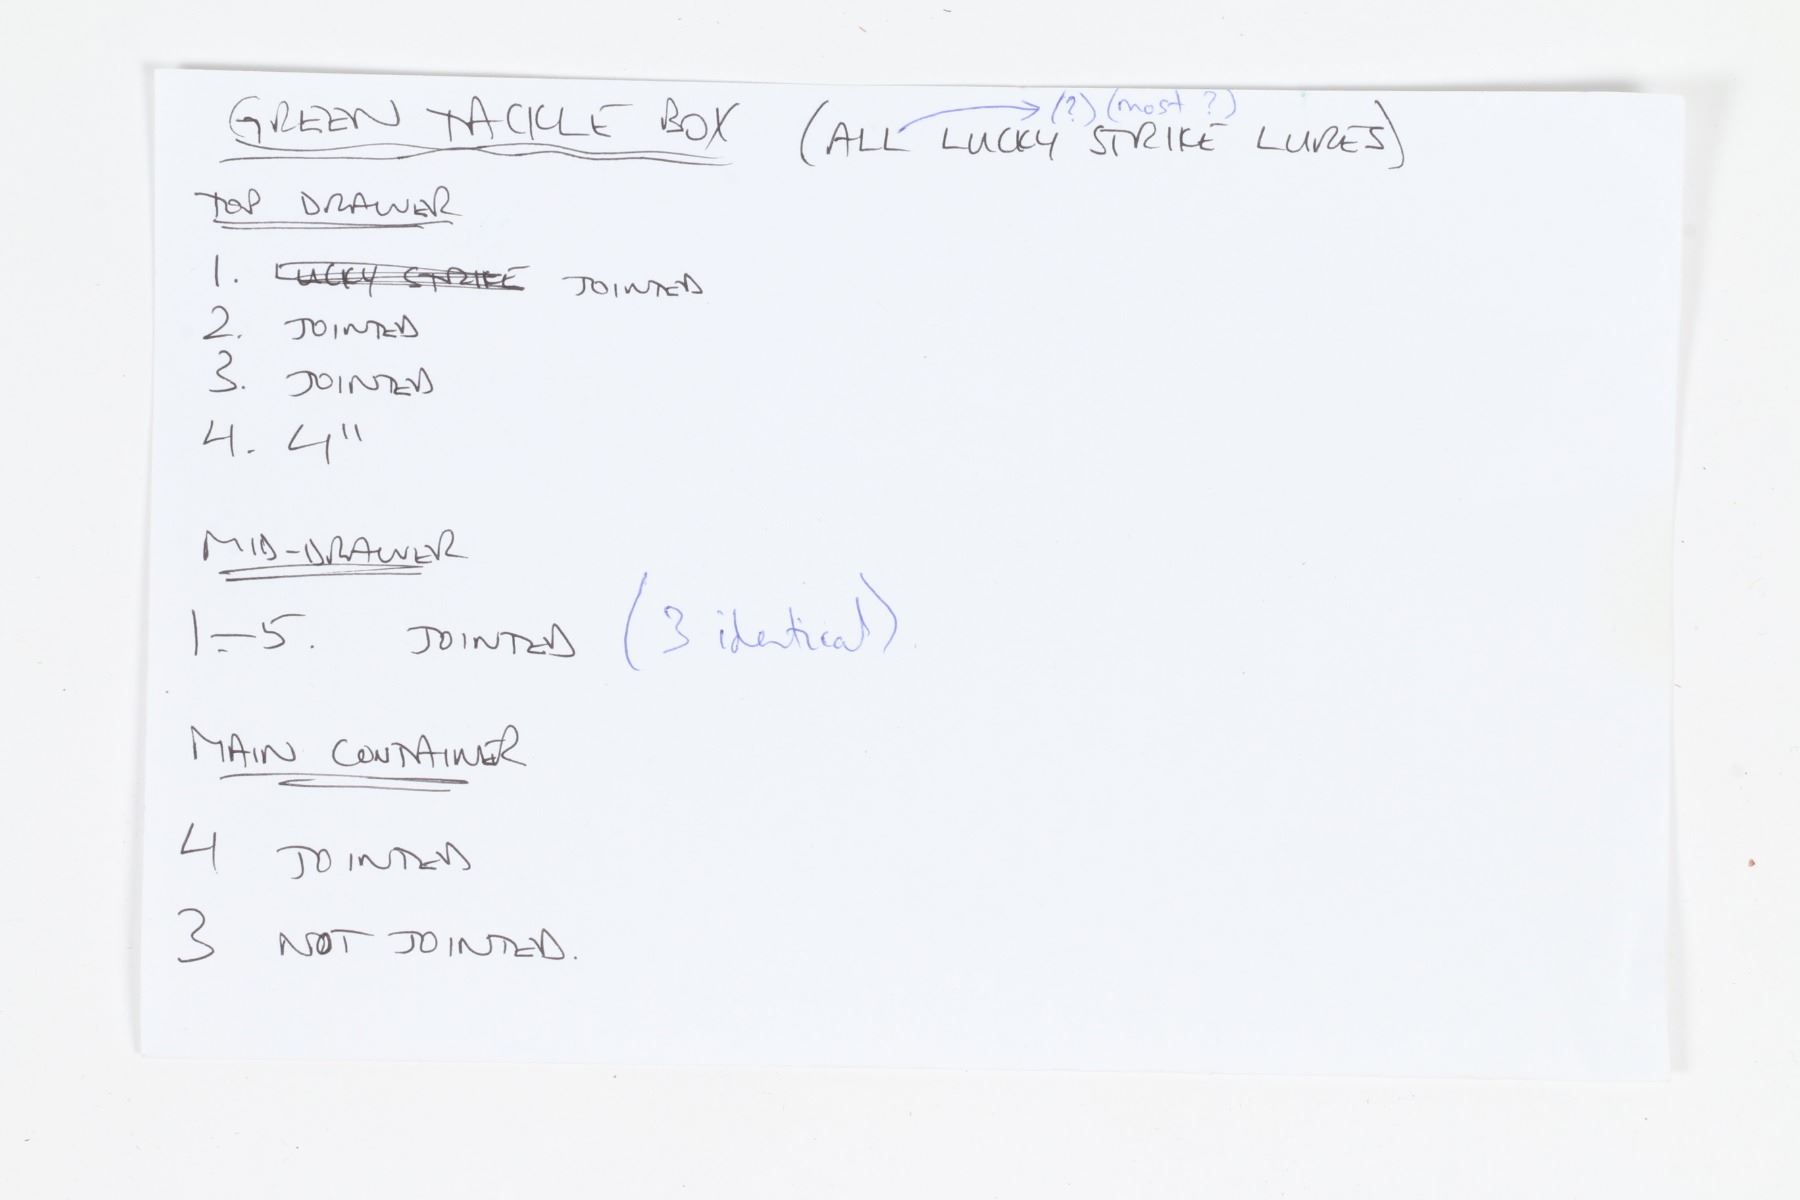 (?) (most ?)
GREEN TACKLE BOX (ALL LUCKY STRIKE LURES)
TOP DRAWER
1. LUCKY STRIKE JOINTED
2. JOINTED
3. JOINTED
4. 4"
MID-DRAWER
1-5. JOINTED (3 identical)
MAIN CONTAINER
4 JOINTED
3 NOT JOINTED.